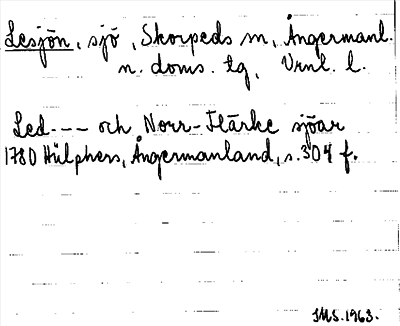 Lesjön, sjö, Skorpeds sn, Ångermanl.
n. doms. tg, Vrnl. l.
Led--- och Norr-Flärke sjöar
1780 Hülphers, Ångermanland, s. 304 f.
IMS. 1963.